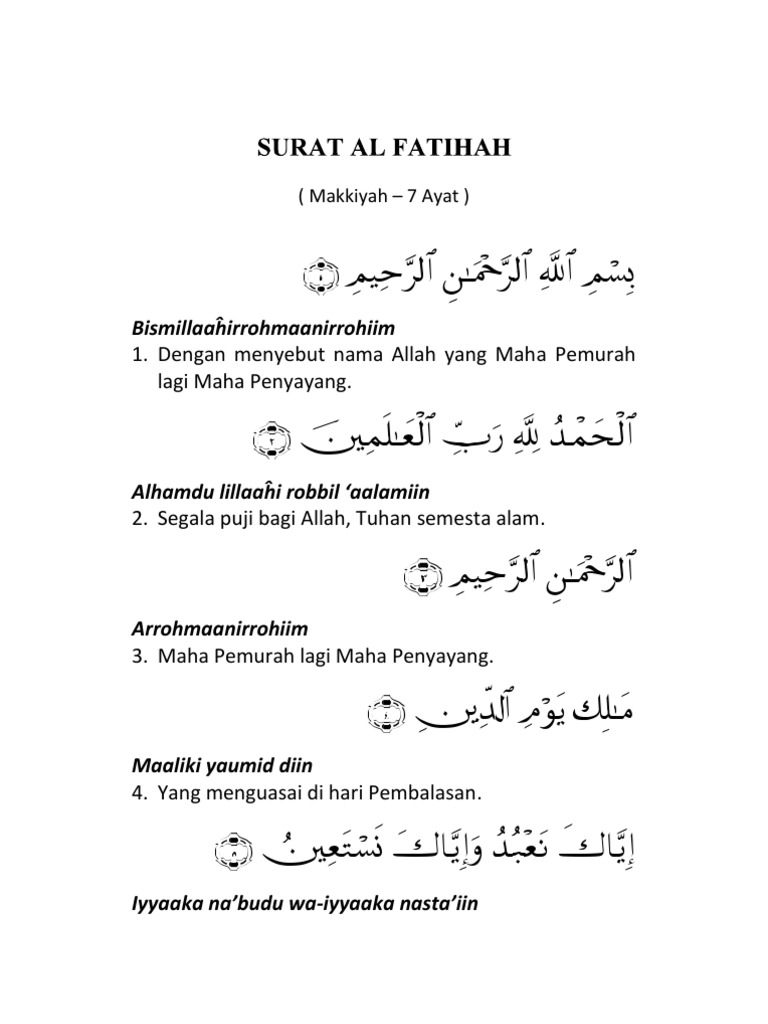 SURAT AL FATIHAH
( Makkiyah – 7 Ayat )
بِسْمِ ٱللَّهِ ٱلرَّحْمَـٰنِ ٱلرَّحِيمِ ﴿١﴾
Bismillaaĥirrohmaanirrohiim
1. Dengan menyebut nama Allah yang Maha Pemurah
lagi Maha Penyayang.
ٱلْحَمْدُ لِلَّهِ رَبِّ ٱلْعَـٰلَمِينَ ﴿٢﴾
Alhamdu lillaaĥi robbil ‘aalamiin
2. Segala puji bagi Allah, Tuhan semesta alam.
ٱلرَّحْمَـٰنِ ٱلرَّحِيمِ ﴿٣﴾
Arrohmaanirrohiim
3. Maha Pemurah lagi Maha Penyayang.
مَـٰلِكِ يَوْمِ ٱلدِّينِ ﴿٤﴾
Maaliki yaumid diin
4. Yang menguasai di hari Pembalasan.
إِيَّاكَ نَعْبُدُ وَإِيَّاكَ نَسْتَعِينُ ﴿٥﴾
Iyyaaka na’budu wa-iyyaaka nasta’iin